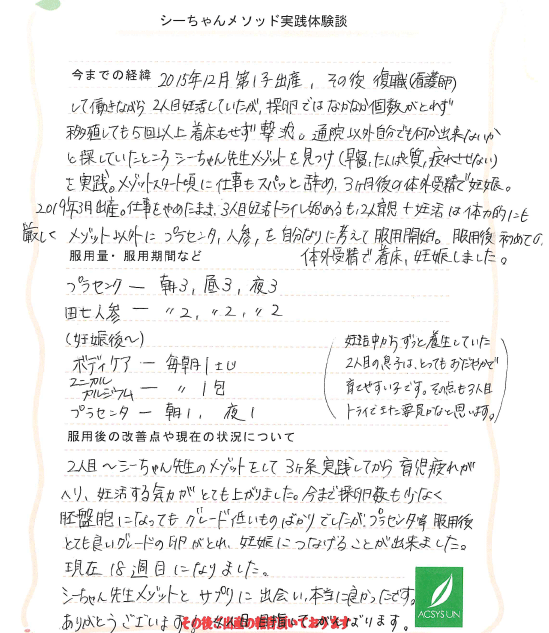 シーちゃんメソッド実践体験談
今までの経緯 2015年12月 第1子出産、その後 復職(看護師)
して働きながら 2人目妊活していたが、採卵ではなかなか個数がとれず
移植しても5回以上 着床もせず撃沈。通院以外自分でも何か出来ないか
と探していたところ シーちゃん先生メゾットを見つけ(早寝、たんぱく質、疲れさせない)
を実践。メゾットスタート頃に仕事もスパッと辞め、3ヶ月後の体外受精で妊娠。
2019年3月出産。仕事をやめたまま、3人目妊活トライし始めるも、2人育児+妊活は体力的にも
厳しく メゾット以外に プラセンタ、人参、を自分なりに考えて服用開始。服用後 初めての
体外受精で着床、妊娠しました。
服用量・服用期間など
プラセンタ ー 朝3、昼3、夜3
田七人参 ー 〃2、〃2、〃2
(妊娠後〜)
ボディケア ー 毎朝1
ユニカル
カルシウム ー 〃 1包
プラセンタ ー 朝1、夜1
(妊活中からずっと養生していた
2人目の息子は、とってもおだやかで
育てやすい子です。その点も3人目
トライできた要員かなと思います。)
服用後の改善点や現在の状況について
2人目〜シーちゃん先生のメゾットをして 3ヶ条実践してから 育児疲れが
へり、妊活する気力が とても上がりました。今まで採卵数も少なく
胚盤胞になっても グレード低いものばかりでしたが、プラセンタ等 服用後
とても良いグレードの卵がとれ、妊娠につなげることが出来ました。
現在 18週目になりました。
シーちゃん先生メゾットと サプリに 出会い、本当に良かったです。
ありがとうございます。出産目指してがんばります。
その後ご出産の報告頂いております
ACSYSUN